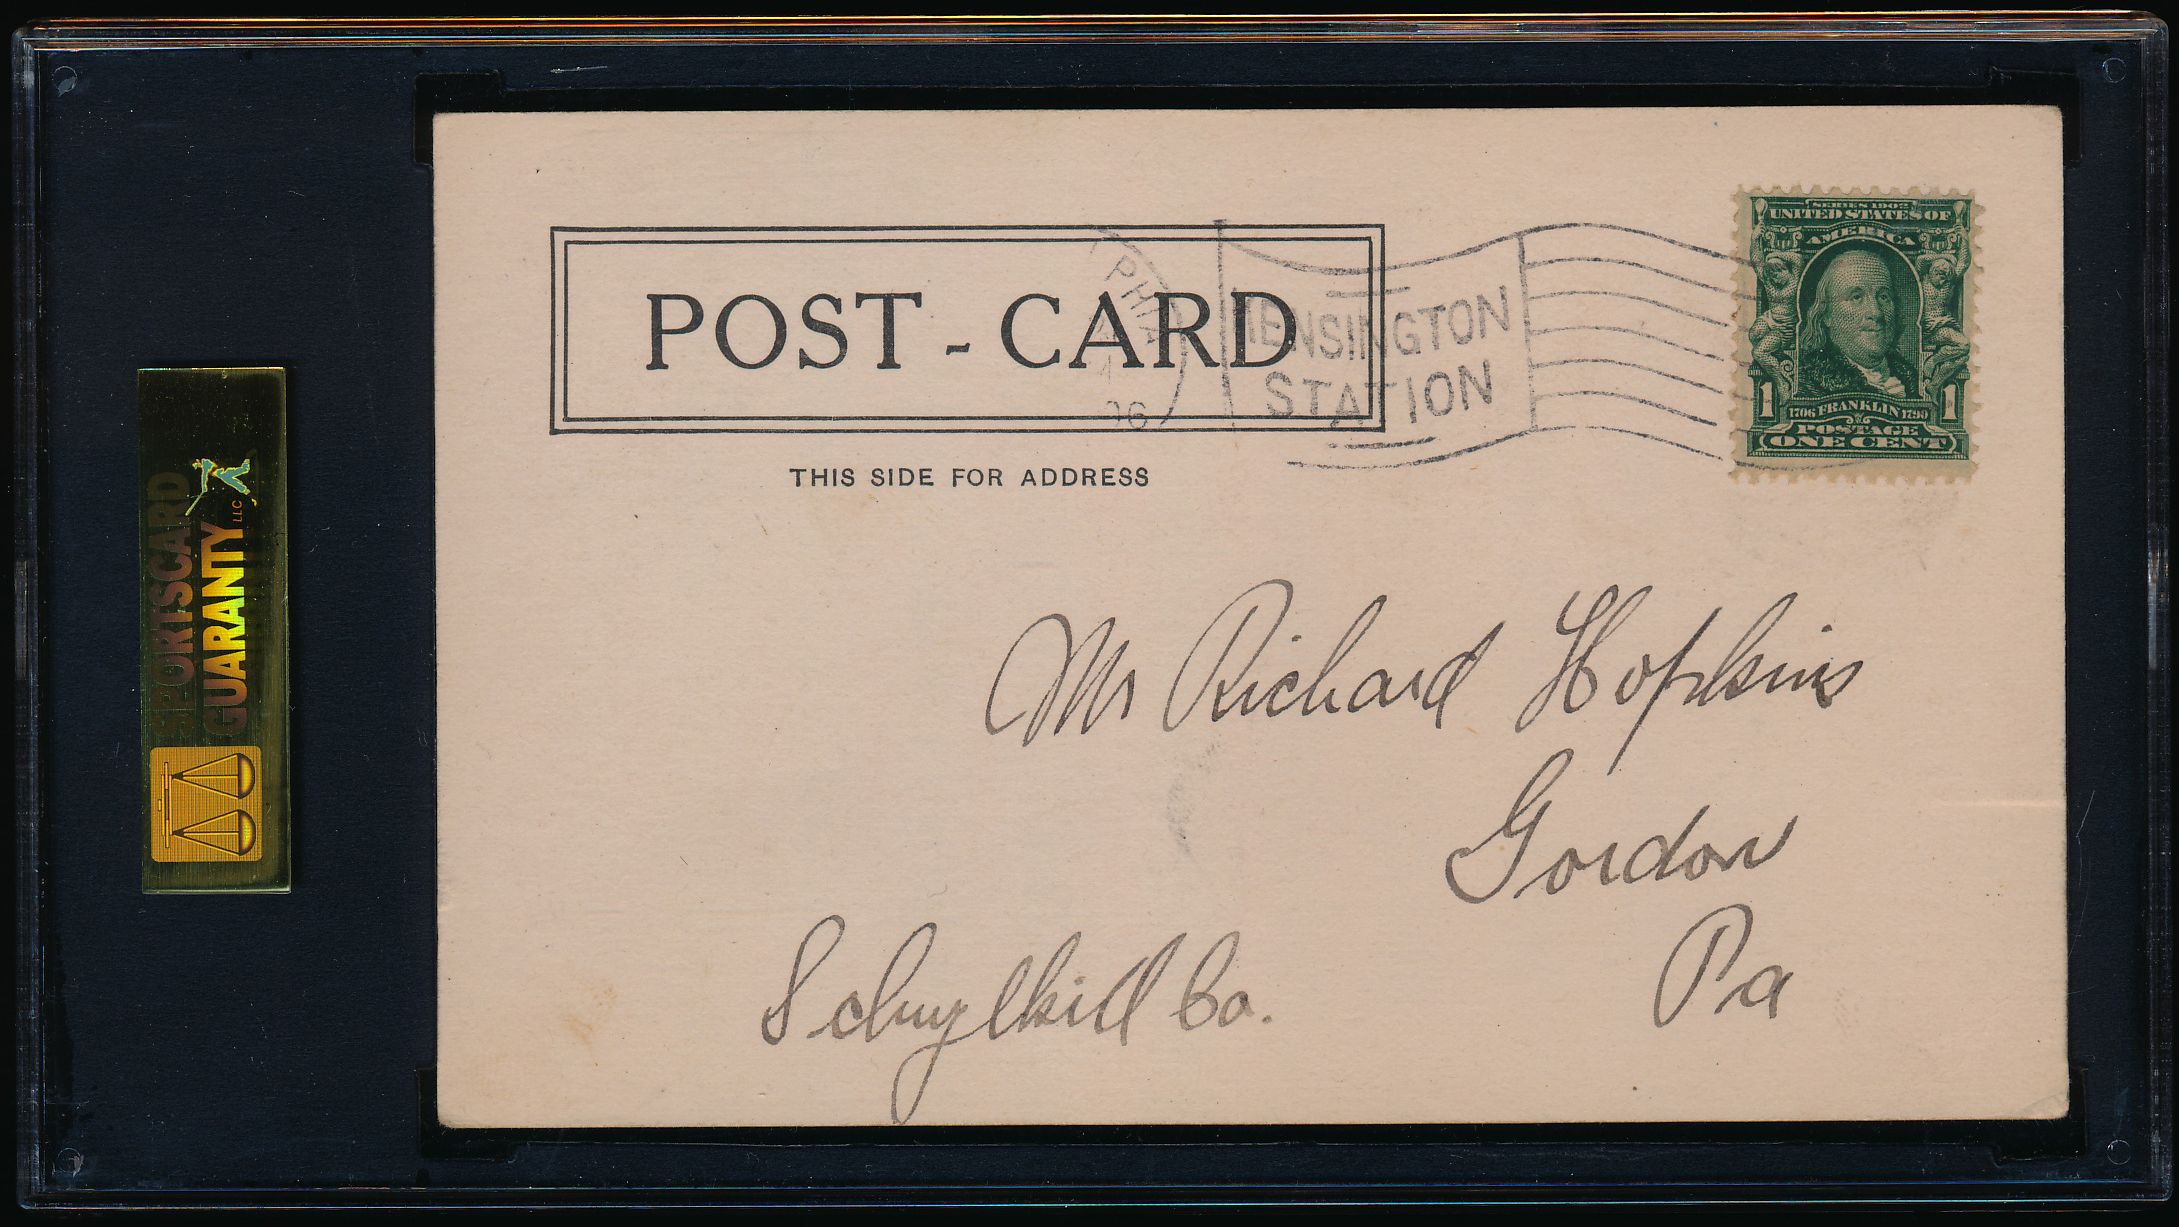 SPORTSCARD
GUARANTY LLC
POST-CARD
PHIA
06
KENSINGTON
STATION
SERIES 1902
UNITED STATES OF
AMERICA
1 1706 FRANKLIN 1790 1
POSTAGE
ONE CENT
THIS SIDE FOR ADDRESS
Mr Richard Hopkins
Gordon
Pa
Schuylkill Co.